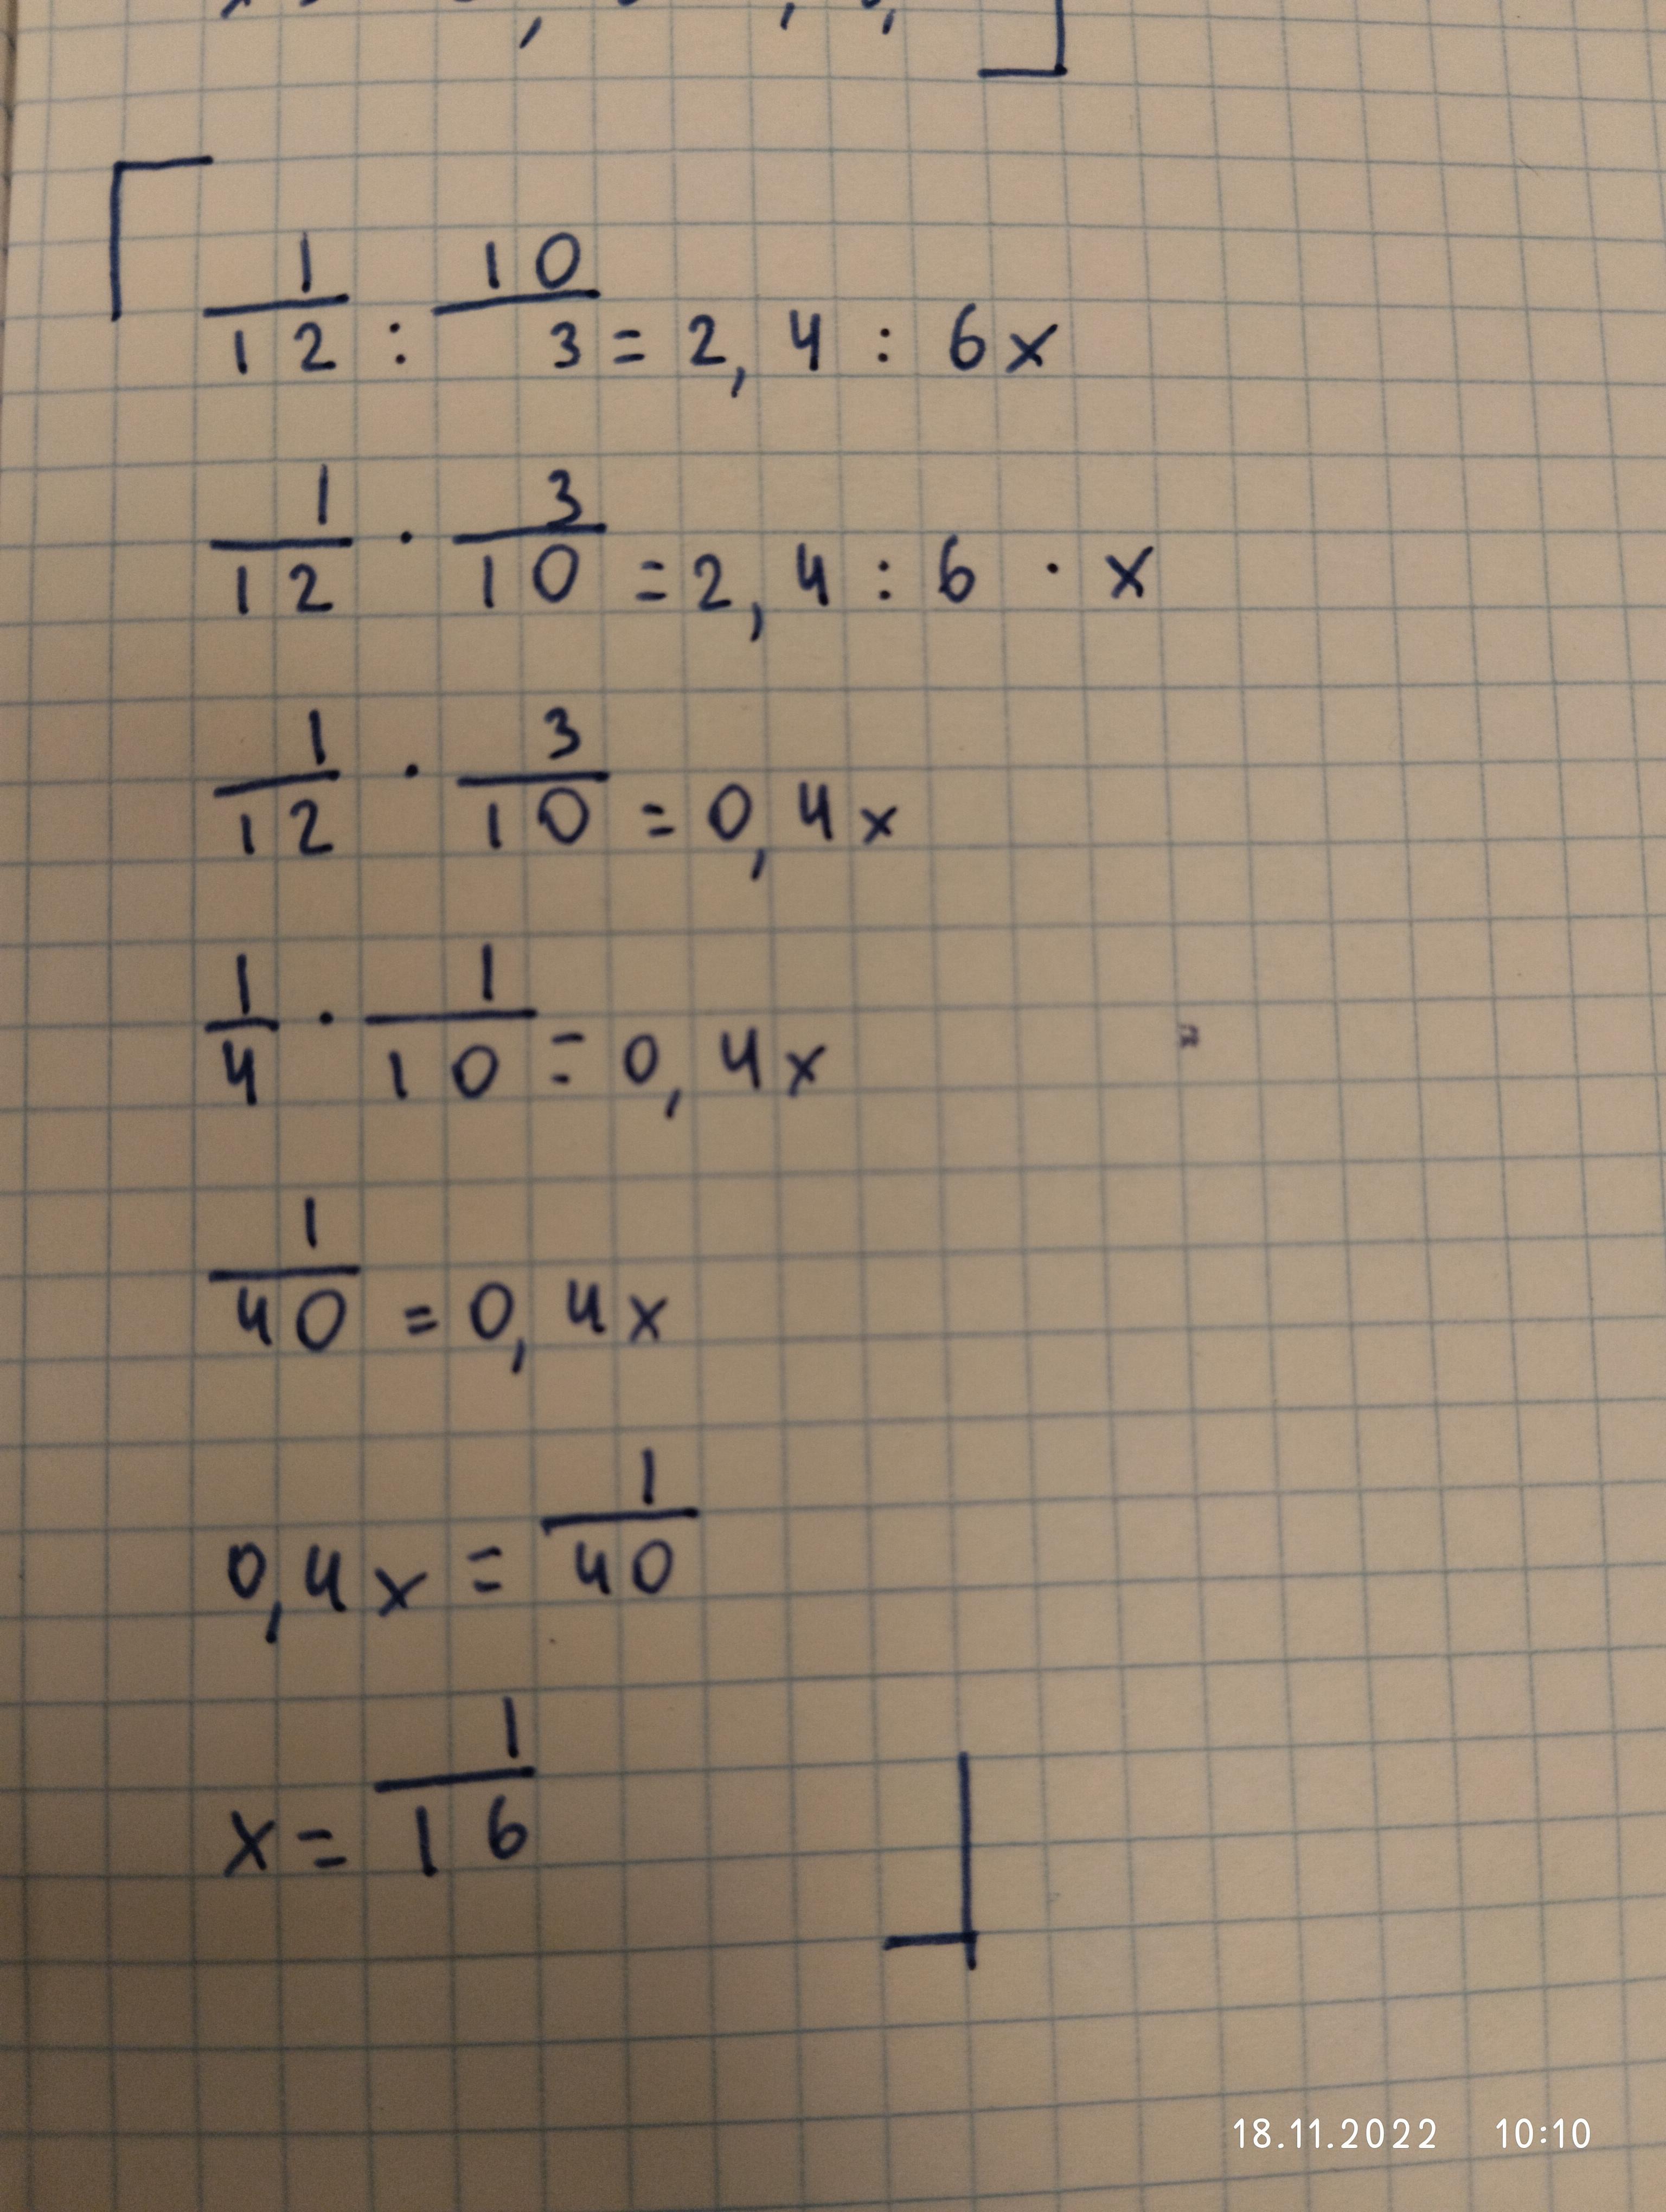 1/12 : 10/3 = 2,4 : 6x
1/12 · 3/10 = 2,4 : 6 · x
1/12 · 3/10 = 0,4x
1/4 · 1/10 = 0,4x
1/40 = 0,4x
0,4x = 1/40
x = 1/16
18.11.2022 10:10